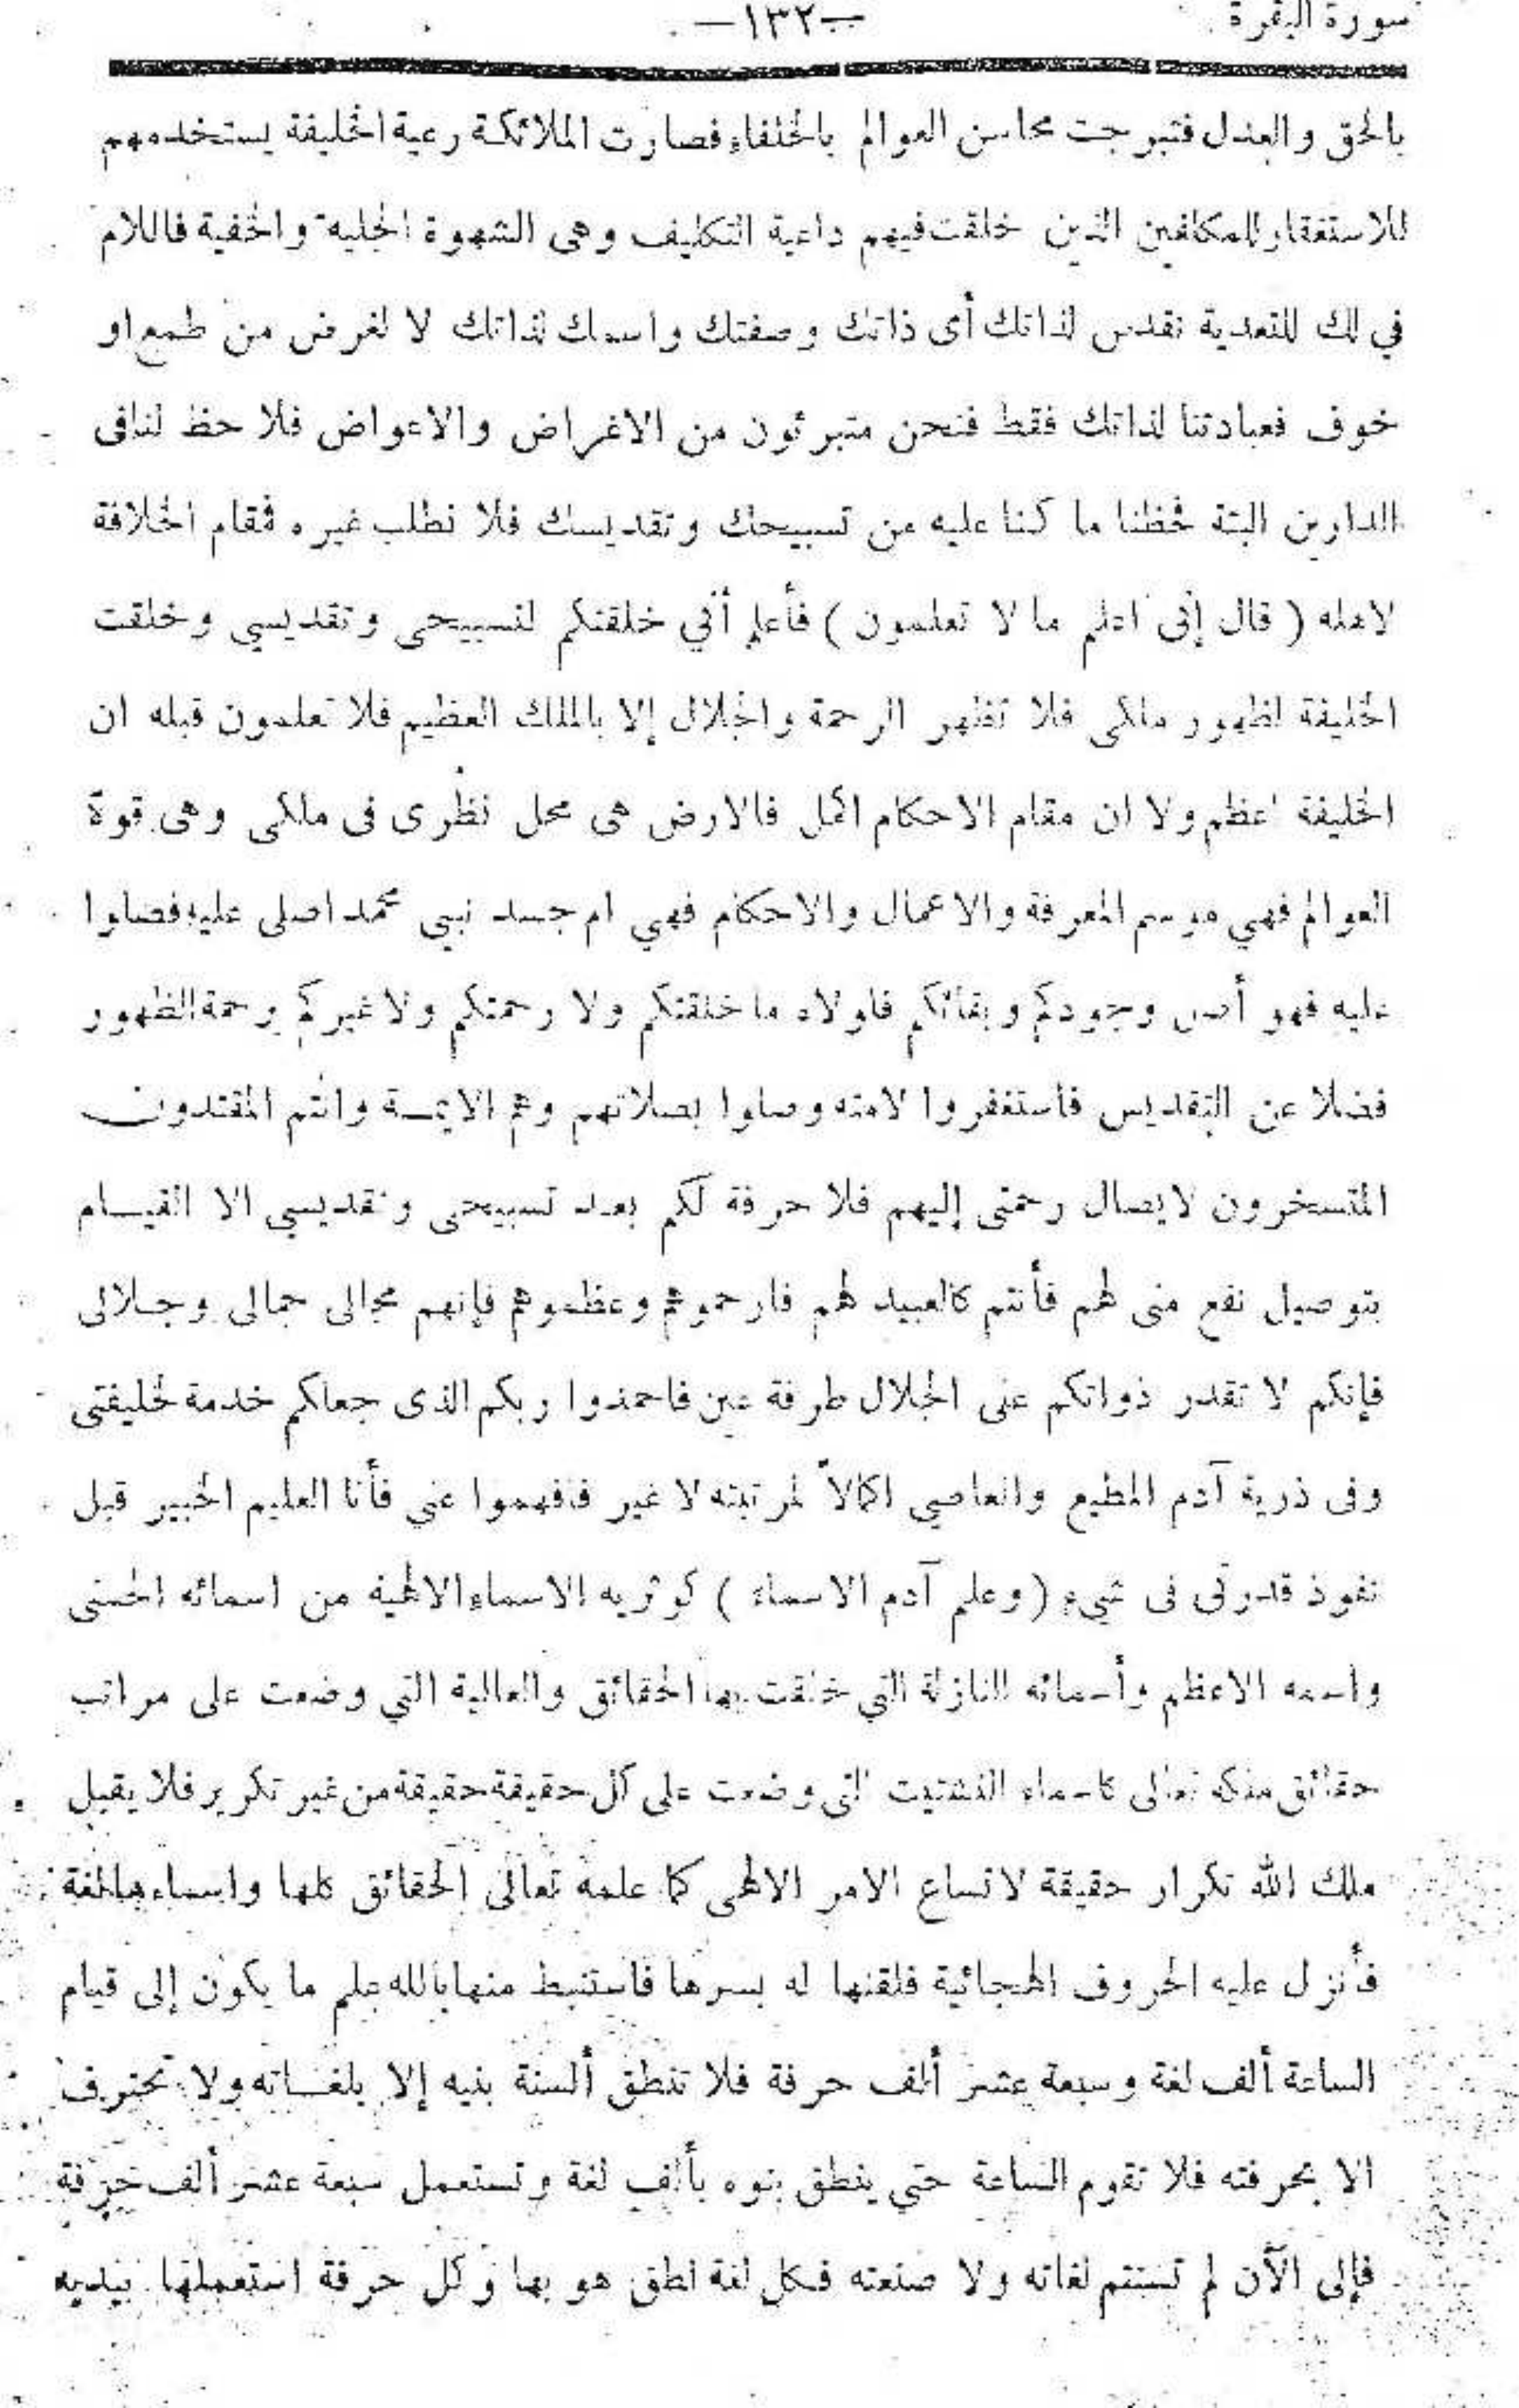 سورة البقرة
—١٣٢—
بالحق والعدل فتبرجت محاسن العوالم بالخلفاء فصارت الملائكة رعية الخليفة يستخدمهم
للاستغفار للمكلفين الذين خلقت فيهم داعية التكليف وهى الشهوة الجلية والخفية فاللام
في لك للتعدية نقدس لذاتك أى ذاتك وصفتك واسمك لذاتك لا لغرض من طمع او
خوف فعبادتنا لذاتك فقط فنحن متبرئون من الاغراض والاعواض فلا حظ لنا فى
الدارين البتة فحظنا ما كنا عليه من تسبيحك وتقديسك فلا نطلب غيره فمقام الخلافة
لاهله ( قال إنى اعلم ما لا تعلمون ) فأعلم أني خلقتكم لتسبيحى وتقديسي وخلقت
الخليفة لظهور ملكى فلا تظهر الرحمة والجلال إلا بالملك العظيم فلا تعلمون قبله ان
الخليفة اعظم ولا ان مقام الاحكام اكمل فالارض هى محل نظرى فى ملكى وهى قوة
العوالم فهي موسم المعرفة والاعمال والاحكام فهي ام جسد نبيى محمد اصلى عليه فصلوا
عليه فهو أصل وجودكم وبقائكم فلولاه ما خلقتكم ولا رحمتكم ولا غيركم رحمة الظهور
فضلا عن التقديس فأستغفروا لامته وصلوا بصلاتهم وهم الايمــة وانتم المقتدون
المتسخرون لايصال رحمتى إليهم فلا حرفة لكم بعد تسبيحى وتقديسي الا القيــام
بتوصيل نفع منى لهم فأنتم كالعبيد لهم فارحموهم وعظموهم فإنهم مجالى جمالى وجــلالى
فإنكم لا تقدر ذواتكم على الجلال طرفة عين فاحمدوا ربكم الذى جعلكم خدمة لخليفتى
وفى ذرية آدم المطيع والعاصي اكمالاً لمرتبته لا غير فافهموا عني فأنا العليم الخبير قبل
نفوذ قدرتى فى شيء ( وعلم آدم الاسماء ) كوثريه الاسماء الالهية من اسمائه الحسنى
واسمه الاعظم وأسمائه النازلة التي خلقت بها الحقائق والعالية التي وضعت على مراتب
حقائق ملكه تعالى كاسماء التشتيت التى وضعت على كل حقيقة حقيقة من غير تكرير فلا يقبل
ملك الله تكرار حقيقة لاتساع الامر الالهى كما علمه تعالى الحقائق كلها واسماءها بالغة
فأنزل عليه الحروف الهجائية فلقنها له بسرها فاستنبط منها بالله علم ما يكون إلى قيام
الساعة ألف لغة وسبعة عشر ألف حرفة فلا تنطق ألسنة بنيه إلا بلغــاته ولا تحترف
الا بحرفته فلا تقوم الساعة حتي ينطق بنوه بألف لغة وتستعمل سبعة عشر ألف حرفة
فإلى الآن لم تستتم لغاته ولا صنعته فكل لغة نطق هو بها وكل حرفة استعملها بيديه